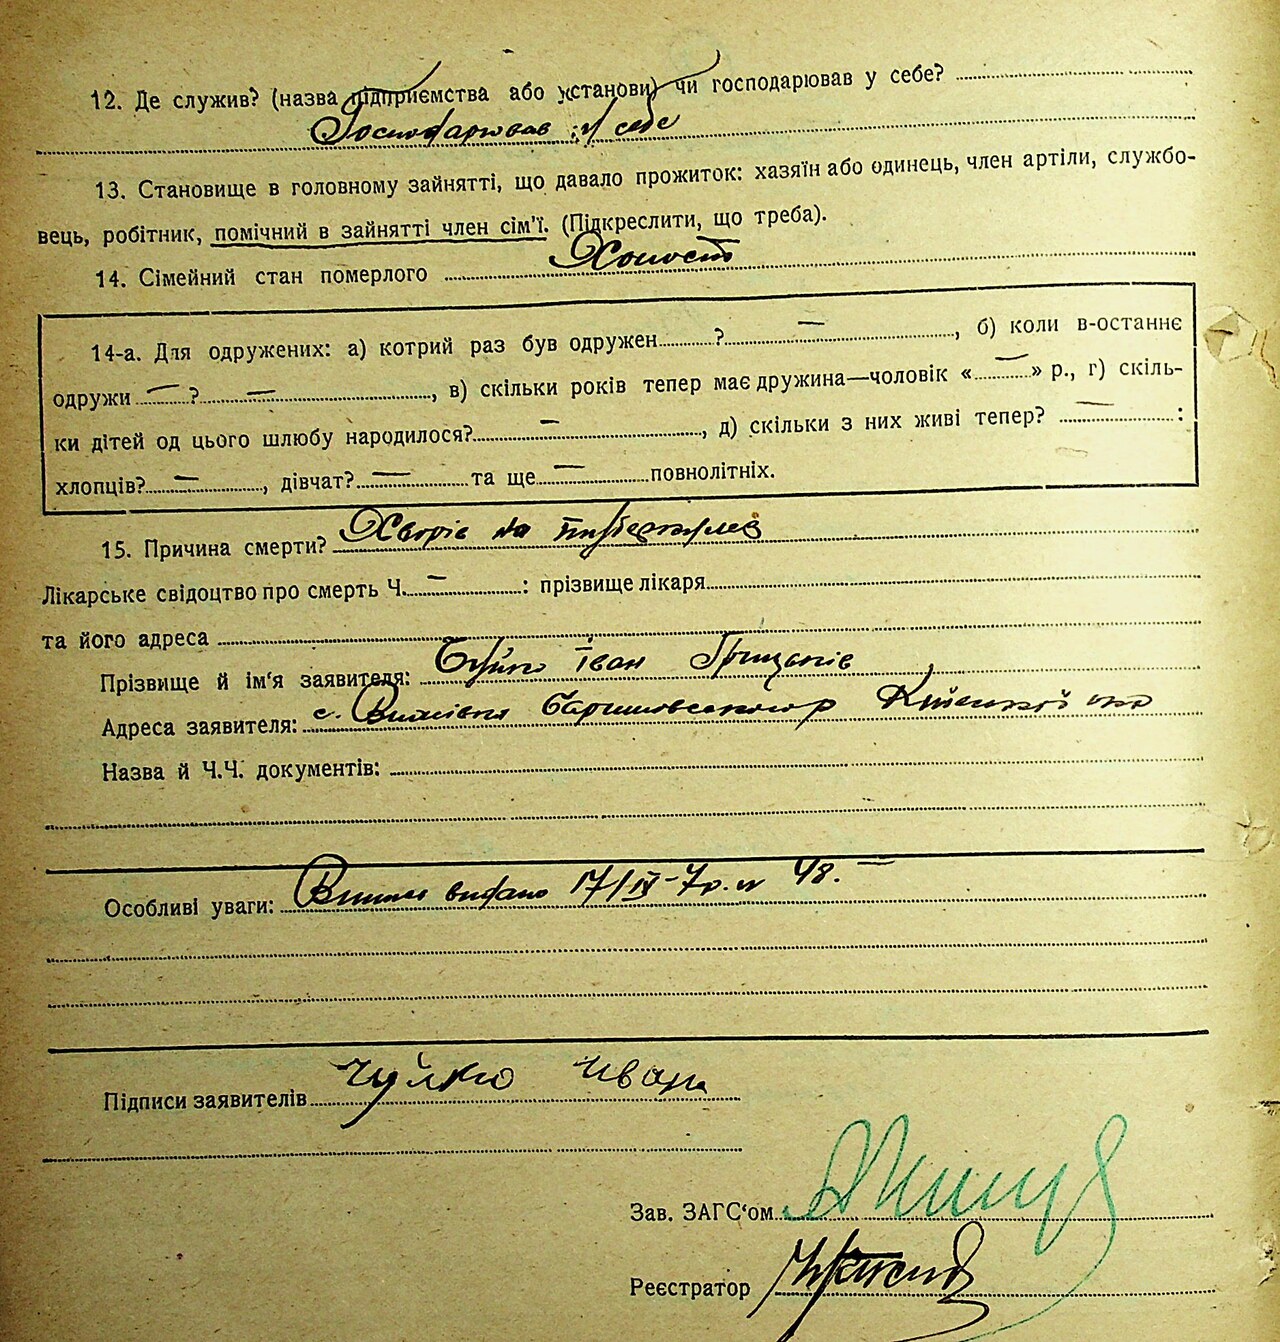 12. Де служив? (назва підприємства або установи) чи господарював у себе?
Господарював у себе
13. Становище в головному зайнятті, що давало прожиток: хазяїн або одинець, член артіли, службо-
вець, робітник, помічний в зайнятті член сім'ї. (Підкреслити, що треба).
14. Сімейний стан померлого Холост
14-а. Для одружених: а) котрий раз був одружен ? — , б) коли в-останнє
одружи — ? — , в) скільки років тепер має дружина—чоловік « — » р., г) скіль-
ки дітей од цього шлюбу народилося? — , д) скільки з них живі тепер? — :
хлопців? — , дівчат? — та ще — повнолітніх.
15. Причина смерти? Хворів на туберкульоз
Лікарське свідоцтво про смерть Ч. — : прізвище лікаря
та його адреса
Прізвище й ім'я заявителя: Чуйко Іван Грицьків
Адреса заявителя: с.
Назва й Ч.Ч. документів:
Особливі уваги: видано 17/IX-7р. № 48. —
Підписи заявителів Чуйко Иван
Зав. ЗАГС'ом
Реєстратор